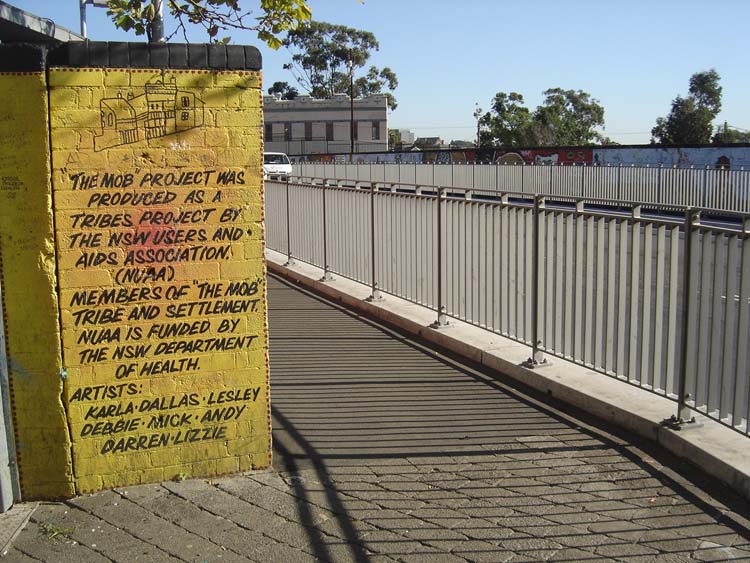 "THE MOB" PROJECT WAS
PRODUCED AS A
TRIBES PROJECT BY
THE NSW USERS AND
AIDS ASSOCIATION
(NUAA)
MEMBERS OF "THE MOB"
TRIBE AND SETTLEMENT.
NUAA IS FUNDED BY
THE NSW DEPARTMENT
OF HEALTH.
ARTISTS:
KARLA·DALLAS·LESLEY
DEBBIE·MICK·ANDY
DARREN·LIZZIE